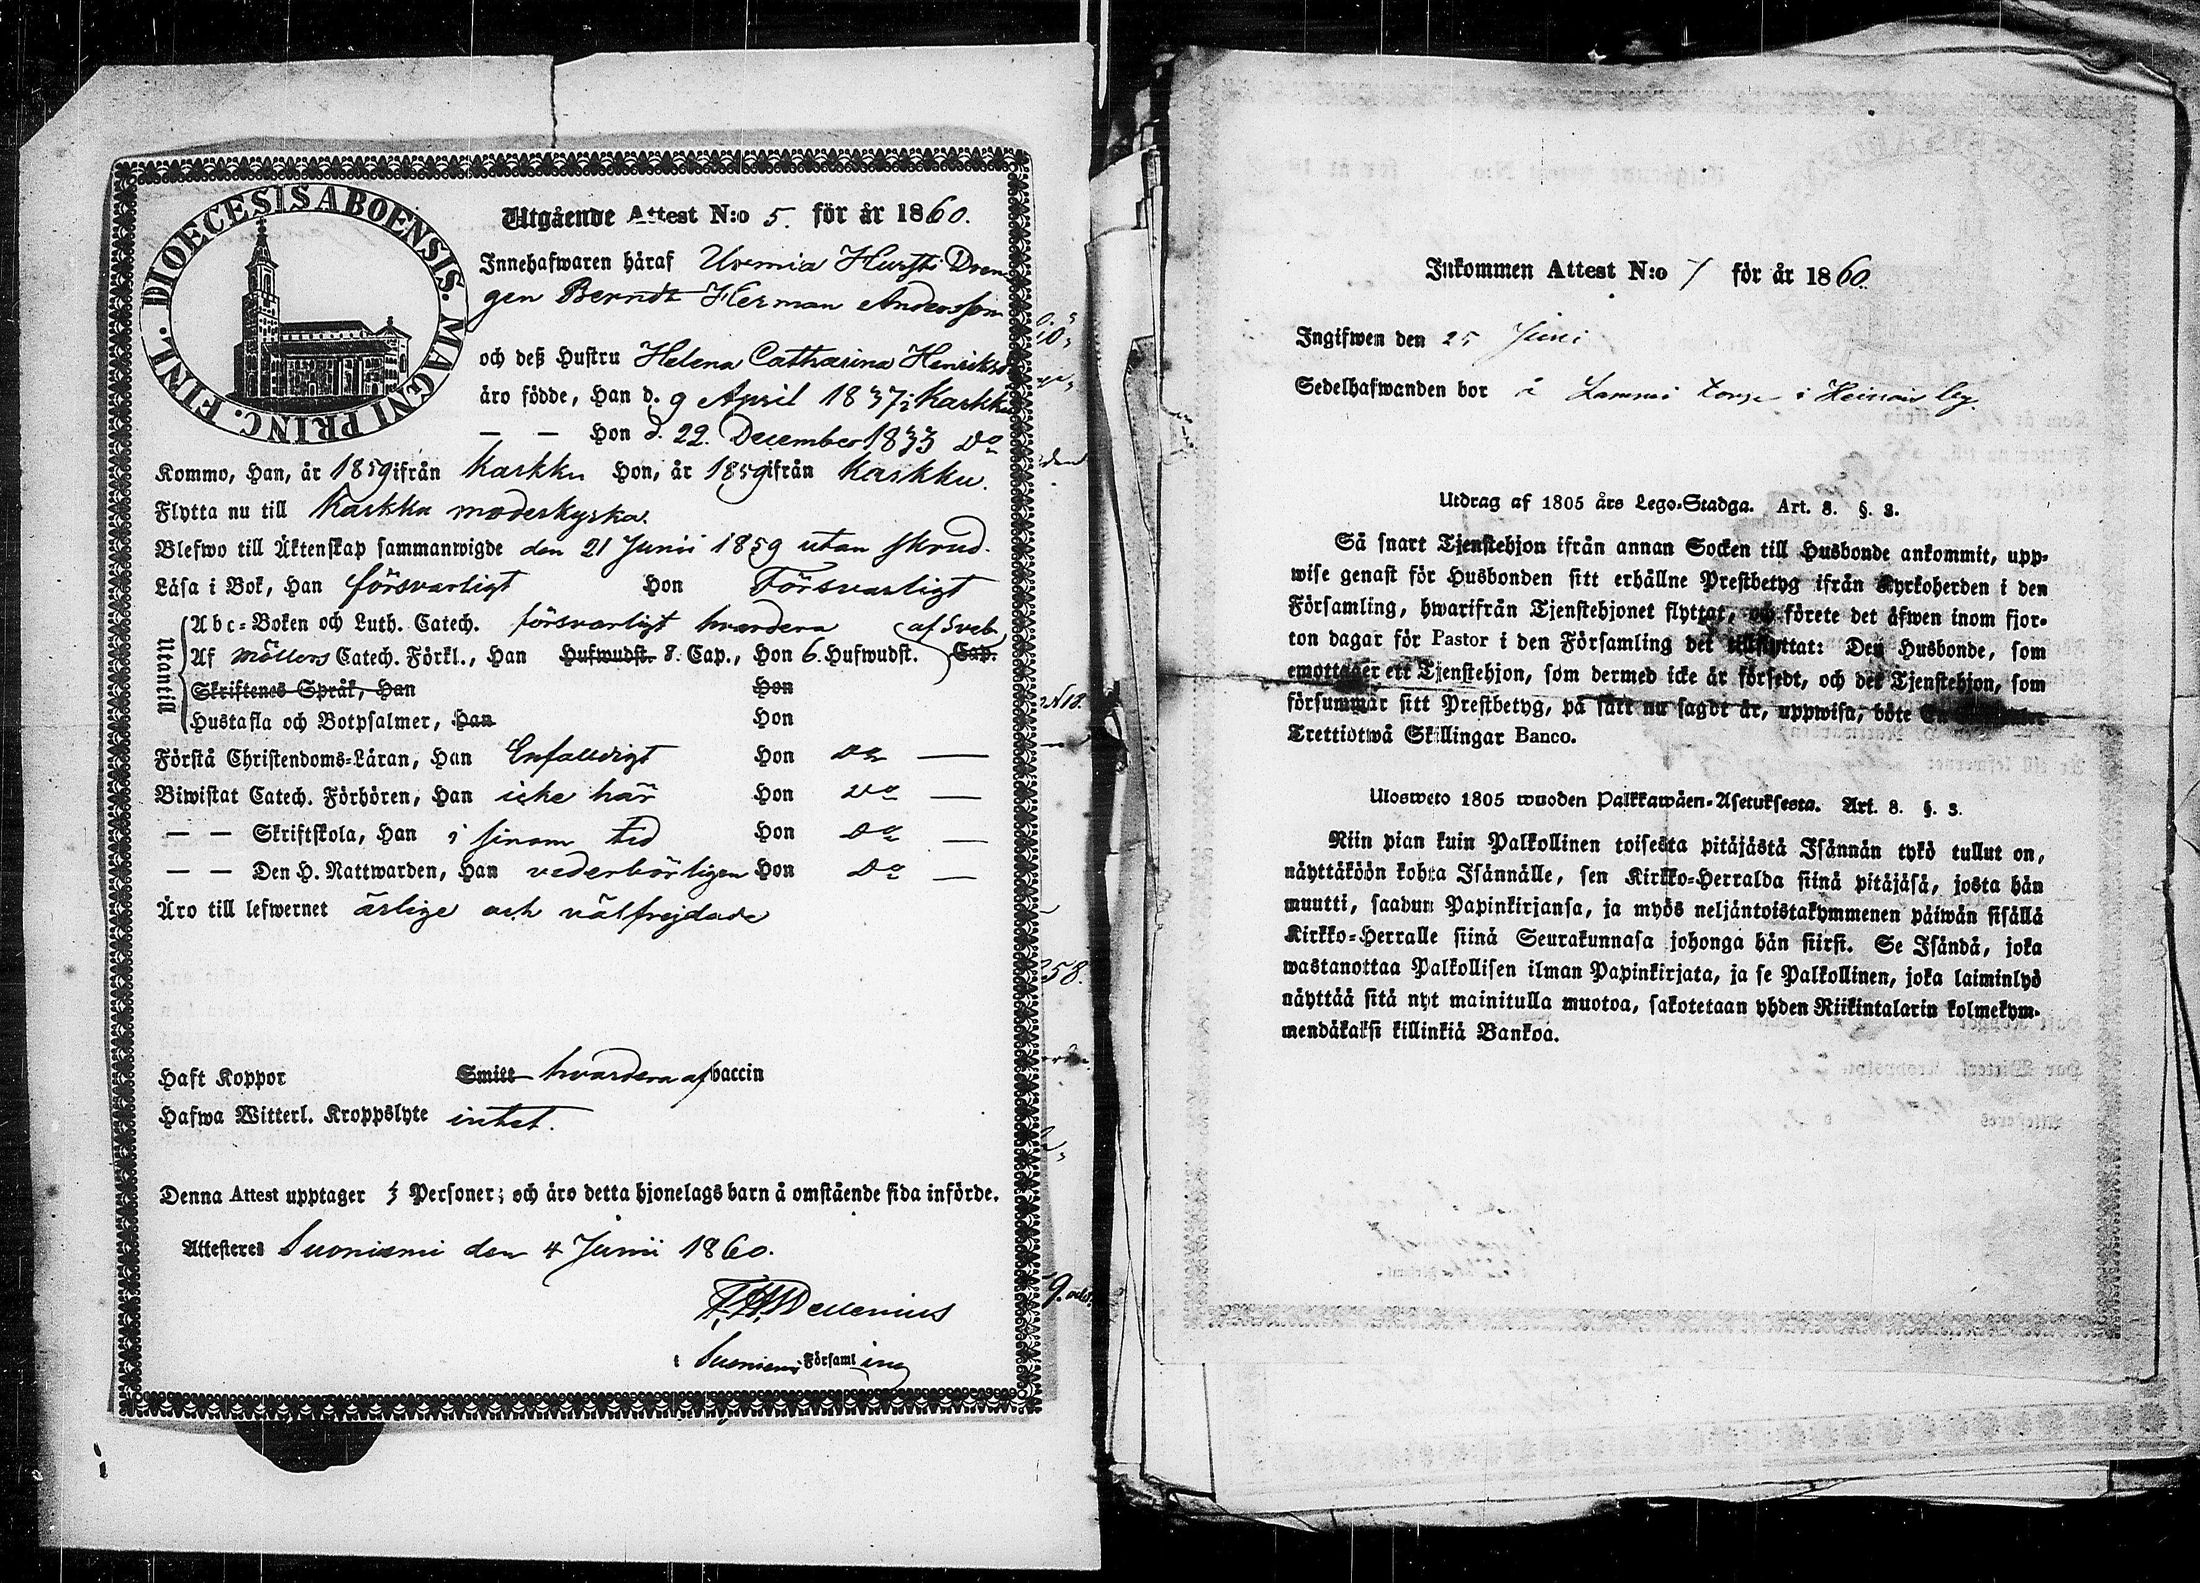 DIOECESIS ABOENSIS. MAGNI PRINC. FINL.
Utgående Attest N:o 5. för år 1860.
Innehafwaren häraf Uremia Hursti Dren
gen Berndt Herman Andersson
och deß Hustru Helena Catharina Henriksd
äro födde, Han d. 9 April 1837 i Karkku
— — Hon d. 22. December 1833 Do
Kommo, Han, år 1859 ifrån Karkku Hon, år 1859 ifrån Karkku.
Flytta nu till Karkku moderkyrka.
Blefwo till Äktenskap sammanwigde den 21 Junii 1859 utan skrud.
Läsa i Bok, Han försvarligt Hon Försvarligt
Utantill
Abc-Boken och Luth. Catech. försvarligt hvardera af Sveb.
Af Möllers Catech. Förkl., Han Hufwudst. 8. Cap., Hon 6. Hufwudst. Cap.
Skriftenes Språk, Han Hon
Hustafla och Botpsalmer, Han Hon
Förstå Christendoms-Läran, Han Enfalldigt Hon Do —
Biwistat Catech. Förhören, Han icke här Hon Do —
— — Skriftskola, Han i sinom tid Hon Do —
— — Den H. Nattwarden, Han vederbörligen Hon Do —
Äro till lefwernet ärlige och välfrejdade
Haft Koppor Smitt hvardera af baccin
Hafwa Witterl. Kroppslyte intet.
Denna Attest upptager Personer; och äro detta hjonelags barn å omstående sida införde.
Attesteres Suoniemi den 4 Junii 1860.
i Suoniemi Församling
Inkommen Attest N:o 7 för år 1860.
Ingifwen den 25 Juni
Sedelhafwanden bor å Lammi torp i Heinois by.
Utdrag af 1805 års Lego-Stadga. Art. 8. §. 3.
Så snart Tjenstehjon ifrån annan Socken till Husbonde ankommit, upp-
wise genast för Husbonden sitt erhållne Prestbetyg ifrån Kyrkoherden i den
Församling, hwarifrån Tjenstehjonet flyttat, och förete det äfwen inom fjor-
ton dagar för Pastor i den Församling det tillflyttat: Den Husbonde, som
emottager ett Tjenstehjon, som dermed icke är försedt, och det Tjenstehjon, som
försummar sitt Prestbetyg, på sätt nu sagdt är, uppwisa, böte En
Trettiotwå Skillingar Banco.
Ulosweto 1805 wuoden Palkkawäen-Asetuksesta. Art. 8. §. 3.
Niin pian kuin Palkollinen toisesta pitäjästä Isännän tykö tullut on,
näyttäköön kohta Isännälle, sen Kirkko-Herralda siinä pitäjäsä, josta hän
muutti, saadun Papinkirjansa, ja myös neljäntoistakymmenen päiwän sisällä
Kirkko-Herralle siinä Seurakunnasa johonga hän siirsi. Se Isändä, joka
wastanottaa Palkollisen ilman Papinkirjata, ja se Palkollinen, joka laiminlyö
näyttää sitä nyt mainitulla muotoa, sakotetaan yhden Riikintalarin kolmekym-
mendäkaksi killinkiä Bankoa.